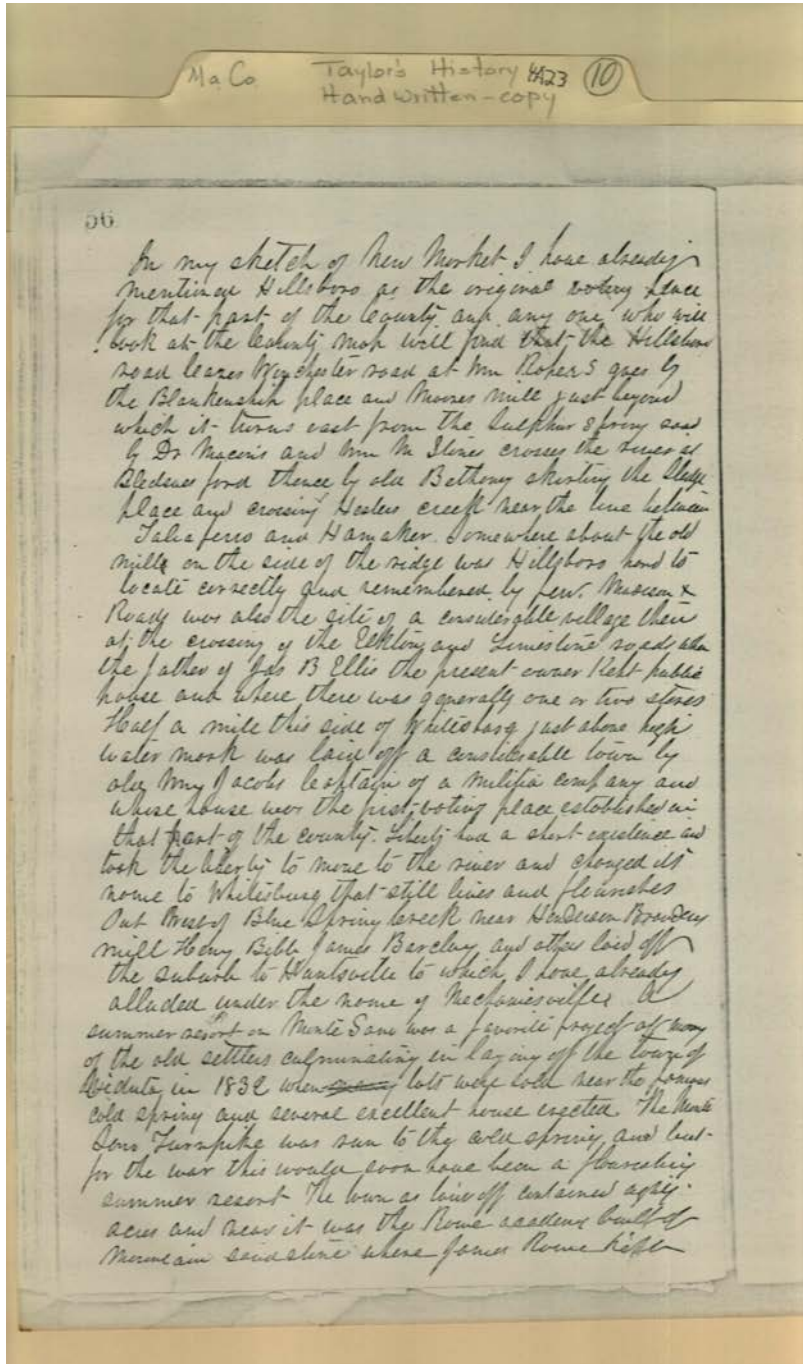 Ma Co Taylor's History 4A23 10
Handwritten-copy
56
In my sketch of New Market I have already
mentioned Hillsboro as the original voting place
for that part of the County and any one who will
look at the County map will find that the Hillsboro
road leaves Winchester road at Wm Rogers goes by
the Blankenship place and Moores mill just beyond
which it turns east from the Sulphur Spring road
by Dr Macons and Wm M crosses the river at
ford thence by old Bethany skirting the Sledge
place and crossing Hesters creek near the line between
Taliaferro and Hamaker. Somewhere about the old
mills on the side of the ridge was Hillsboro hard to
locate correctly and remembered by few. Madison X
Roads was also the site of a considerable village then
at the crossing of the Elkton and Limestone roads when
the father of Jas B Ellis the present owner Kept public
house and where there was generally one or two stores
Half a mile this side of Whitesburg just above high
water mark was laid off a considerable town by
old Wm Jacobs Captain of a militia company and
whose house was the first voting place established in
that part of the county. Liberty had a short existence and
took the liberty to move to the river and changed its
name to Whitesburg that still lives and flourishes
Out West of Blue Spring creek near Henderson Brandons
mill Henry Bibb James Barclay and others laid off
the suburb to Huntsville to which I have already
alluded under the name of Mechanicsville. A
summer resort on Monte Sano was a favorite project of many
of the old settlers culminating in laying off the town of
Viduta in 1832 when lots were sold near the famous
cold spring and several excellent house erected. The Monte
Sano Turnpike was run to the cold spring and but
for the war this would soon have been a flourishing
summer resort The town as laid off contained eighty
acres and near it was the Rowe academy built of
mountain sandstone where James Rowe kept